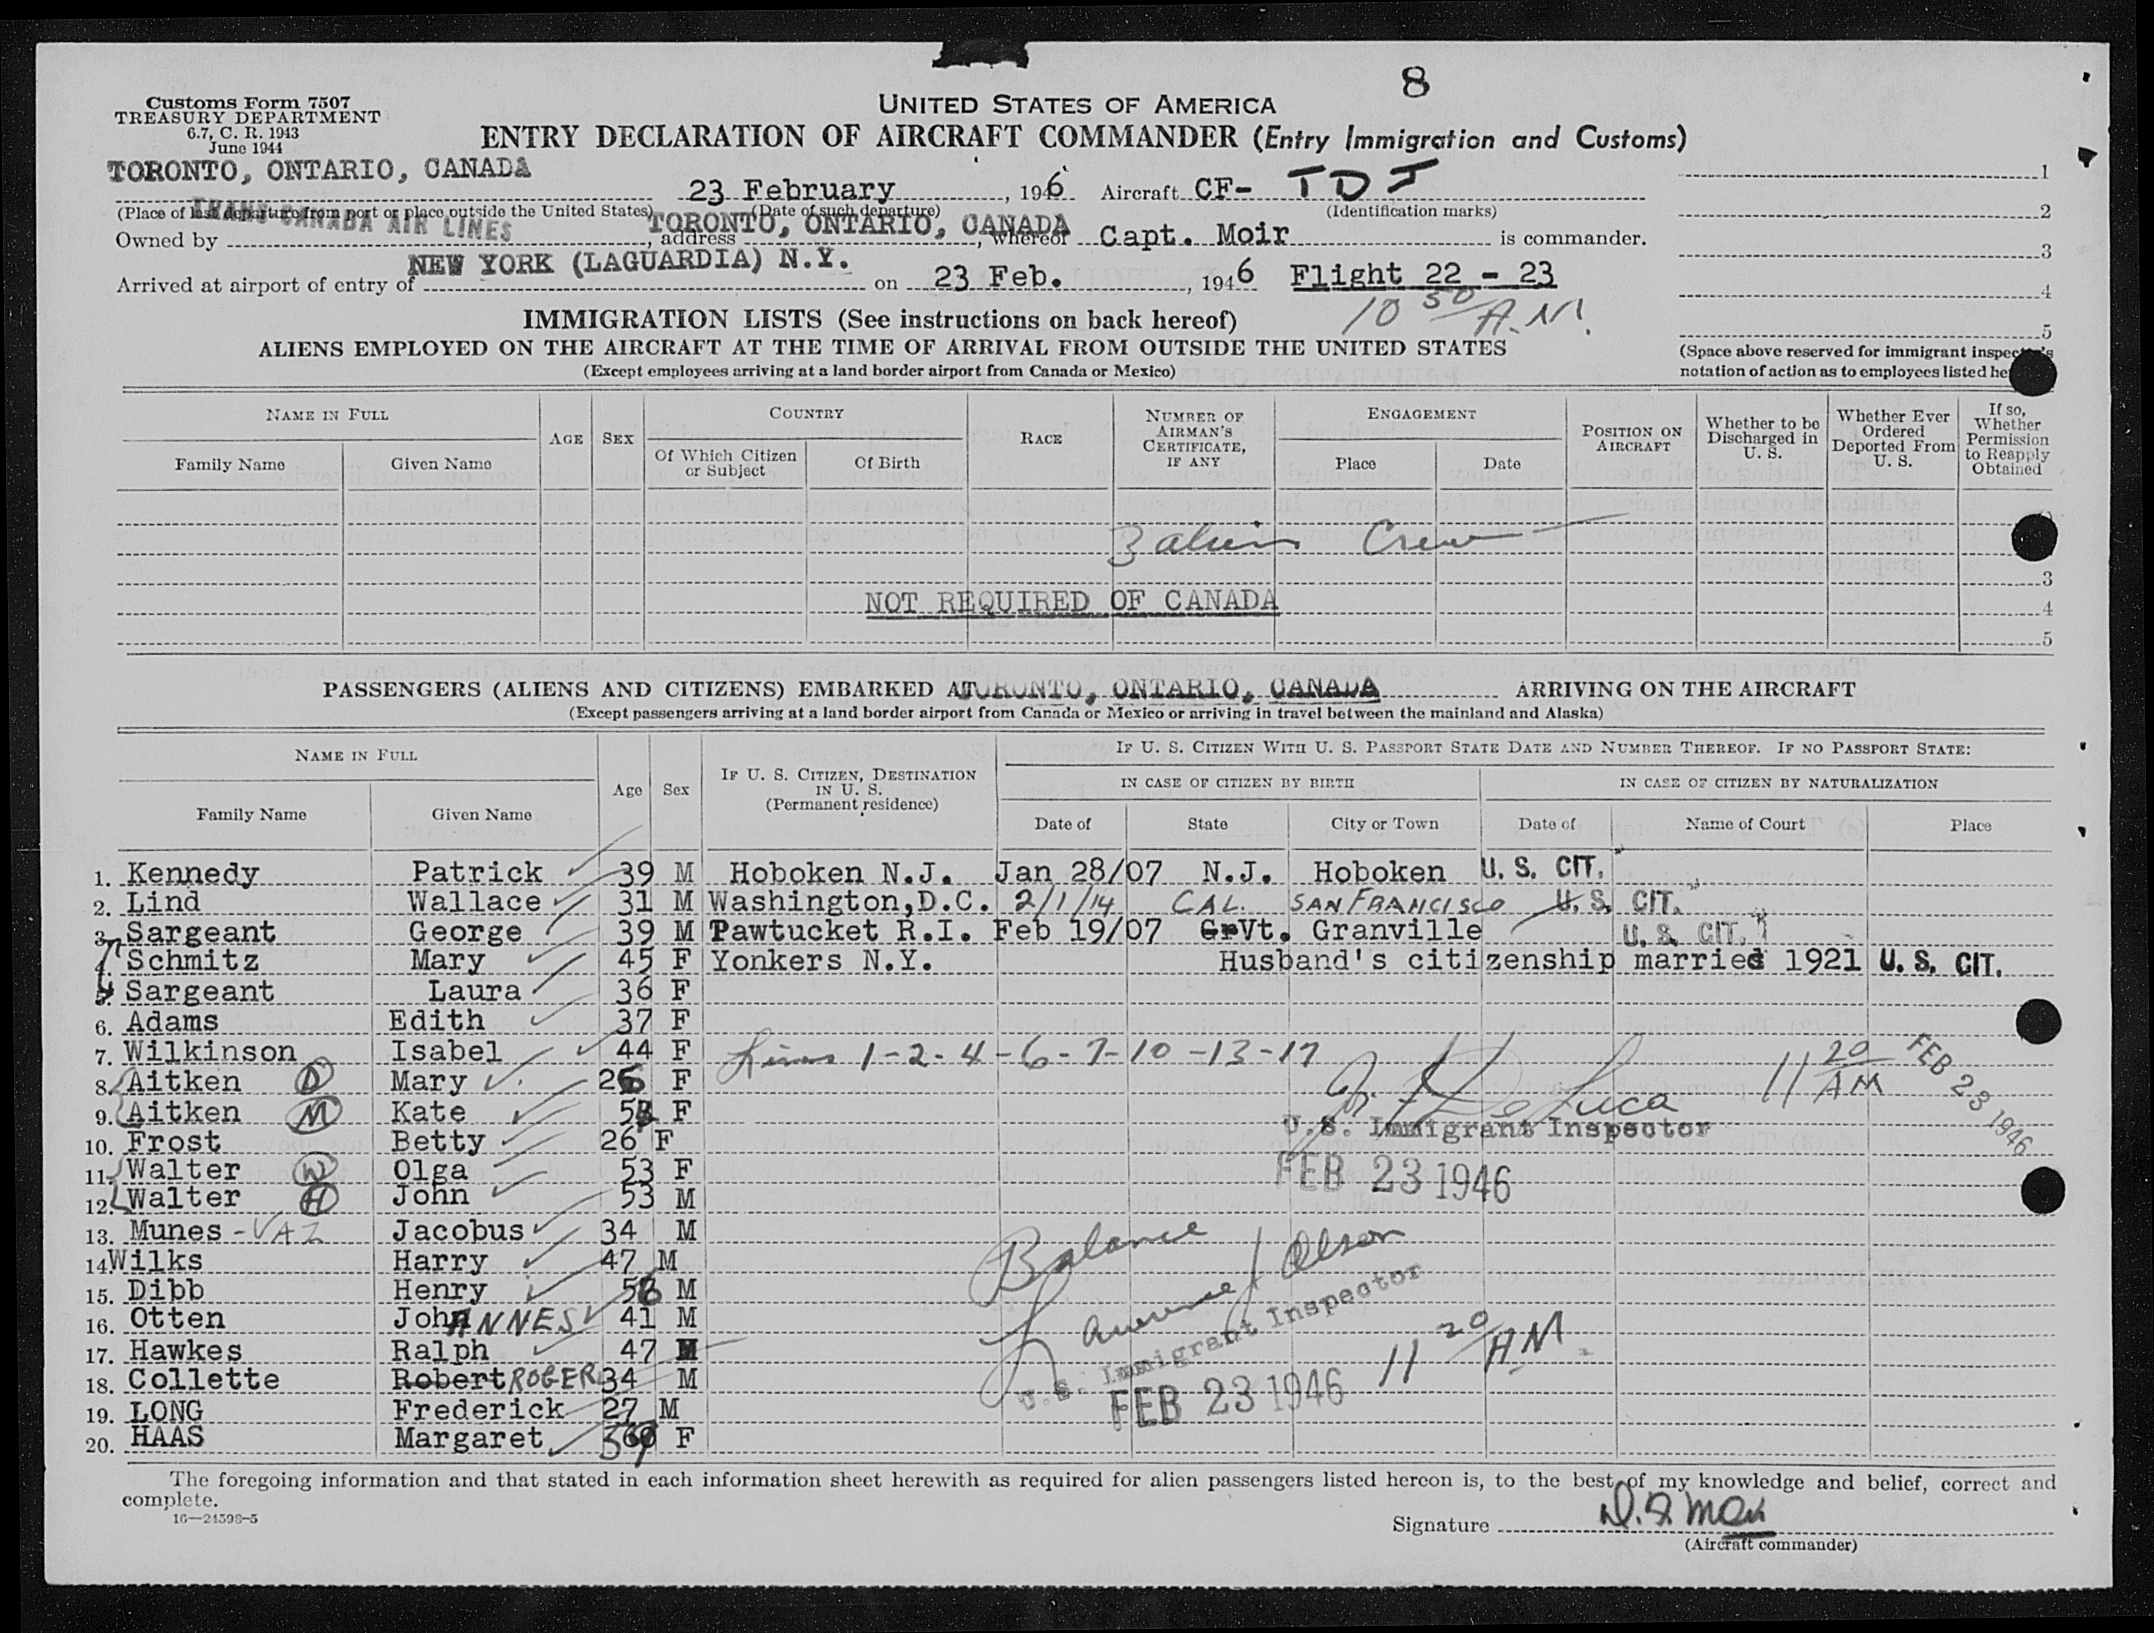 8
Customs Form 7507
TREASURY DEPARTMENT
6.7, C. R. 1943
June 1944
UNITED STATES OF AMERICA
ENTRY DECLARATION OF AIRCRAFT COMMANDER (Entry Immigration and Customs)
TORONTO, ONTARIO, CANADA
23 February, 1946 Aircraft CF- TDJ
(Place of last departure from port or place outside the United States) (Date of such departure) (Identification marks)
TRANS CANADA AIR LINES TORONTO, ONTARIO, CANADA
Owned by , address , whereof Capt. Moir is commander.
NEW YORK (LAGUARDIA) N.Y.
Arrived at airport of entry of on 23 Feb., 1946 Flight 22 - 23
10 50 A.M.
1
2
3
4
5
IMMIGRATION LISTS (See instructions on back hereof)
ALIENS EMPLOYED ON THE AIRCRAFT AT THE TIME OF ARRIVAL FROM OUTSIDE THE UNITED STATES
(Except employees arriving at a land border airport from Canada or Mexico)
(Space above reserved for immigrant inspector's
notation of action as to employees listed
NAME IN FULL
Family Name Given Name
AGE SEX
COUNTRY
Of Which Citizen or Subject Of Birth
RACE
NUMBER OF AIRMAN'S CERTIFICATE, IF ANY
ENGAGEMENT
Place Date
POSITION ON AIRCRAFT
Whether to be Discharged in U. S.
Whether Ever Ordered Deported From U. S.
If so, Whether Permission to Reapply Obtained
3 alien Crew
3
NOT REQUIRED OF CANADA
4
5
PASSENGERS (ALIENS AND CITIZENS) EMBARKED AT TORONTO, ONTARIO, CANADA ARRIVING ON THE AIRCRAFT
(Except passengers arriving at a land border airport from Canada or Mexico or arriving in travel between the mainland and Alaska)
NAME IN FULL
Family Name Given Name
Age Sex
IF U. S. CITIZEN, DESTINATION IN U. S.
(Permanent residence)
IF U. S. CITIZEN WITH U. S. PASSPORT STATE DATE AND NUMBER THEREOF. IF NO PASSPORT STATE:
IN CASE OF CITIZEN BY BIRTH IN CASE OF CITIZEN BY NATURALIZATION
Date of State City or Town Date of Name of Court Place
1. Kennedy Patrick 39 M Hoboken N.J. Jan 28/07 N.J. Hoboken U. S. CIT.
2. Lind Wallace 31 M Washington,D.C. 2/1/14 CAL. SAN FRANCISCO U. S. CIT.
3. Sargeant George 39 M Pawtucket R.I. Feb 19/07 Vt. Granville U. S. CIT.
4. Schmitz Mary 45 F Yonkers N.Y. Husband's citizenship married 1921 U. S. CIT.
5. Sargeant Laura 36 F
6. Adams Edith 37 F
7. Wilkinson Isabel 44 F Lines 1-2-4-6-7-10-13-17
8. Aitken D Mary 26 F
9. Aitken M Kate F
J. DeLuca 11 20 AM FEB 23 1946
U.S. Immigrant Inspector
10. Frost Betty 26 F
11. Walter W Olga 53 F
FEB 23 1946
12. Walter H John 53 M
13. Munes - VAZ Jacobus 34 M
Balance
14. Wilks Harry 47 M
15. Dibb Henry M
16. Otten JohANNES 41 M
Lawrence J Olson
U.S. Immigrant Inspector
11 20 AM.
17. Hawkes Ralph 47 M
18. Collette Robert ROGER 34 M
FEB 23 1946
19. LONG Frederick 27 M
20. HAAS Margaret F
The foregoing information and that stated in each information sheet herewith as required for alien passengers listed hereon is, to the best of my knowledge and belief, correct and
complete.
16—24598-5
Signature
(Aircraft commander)